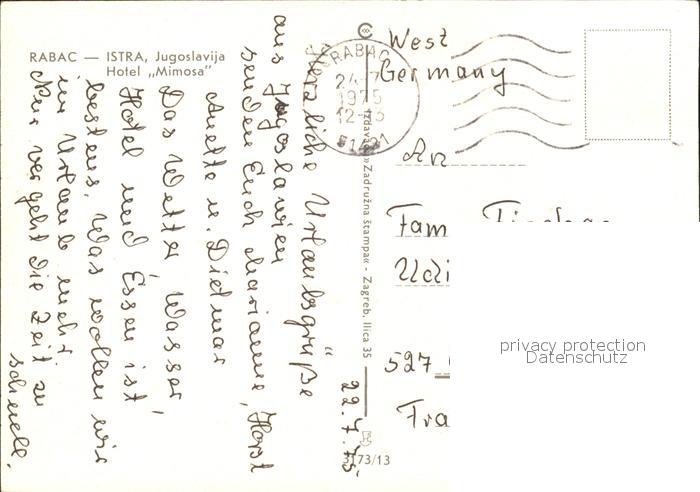 RABAC — ISTRA, Jugoslavija
Hotel „Mimosa"
22.7.75.
Herzliche Urlaubsgrüße
aus Jugoslawien
senden Euch Marianne, Horst
Anette u. Dietmar
Das Wetter, Wasser,
Hotel und Essen ist
bestens. Was wollen wir
im Urlaub mehr.
Nur vergeht die Zeit zu
schnell.
Izdavač »Zadružna štampa« - Zagreb, Ilica 35
3173/13
RABAC
24-7
1975
12-
51421
West
Germany
An
Fam
527
Fra
privacy protection
Datenschutz